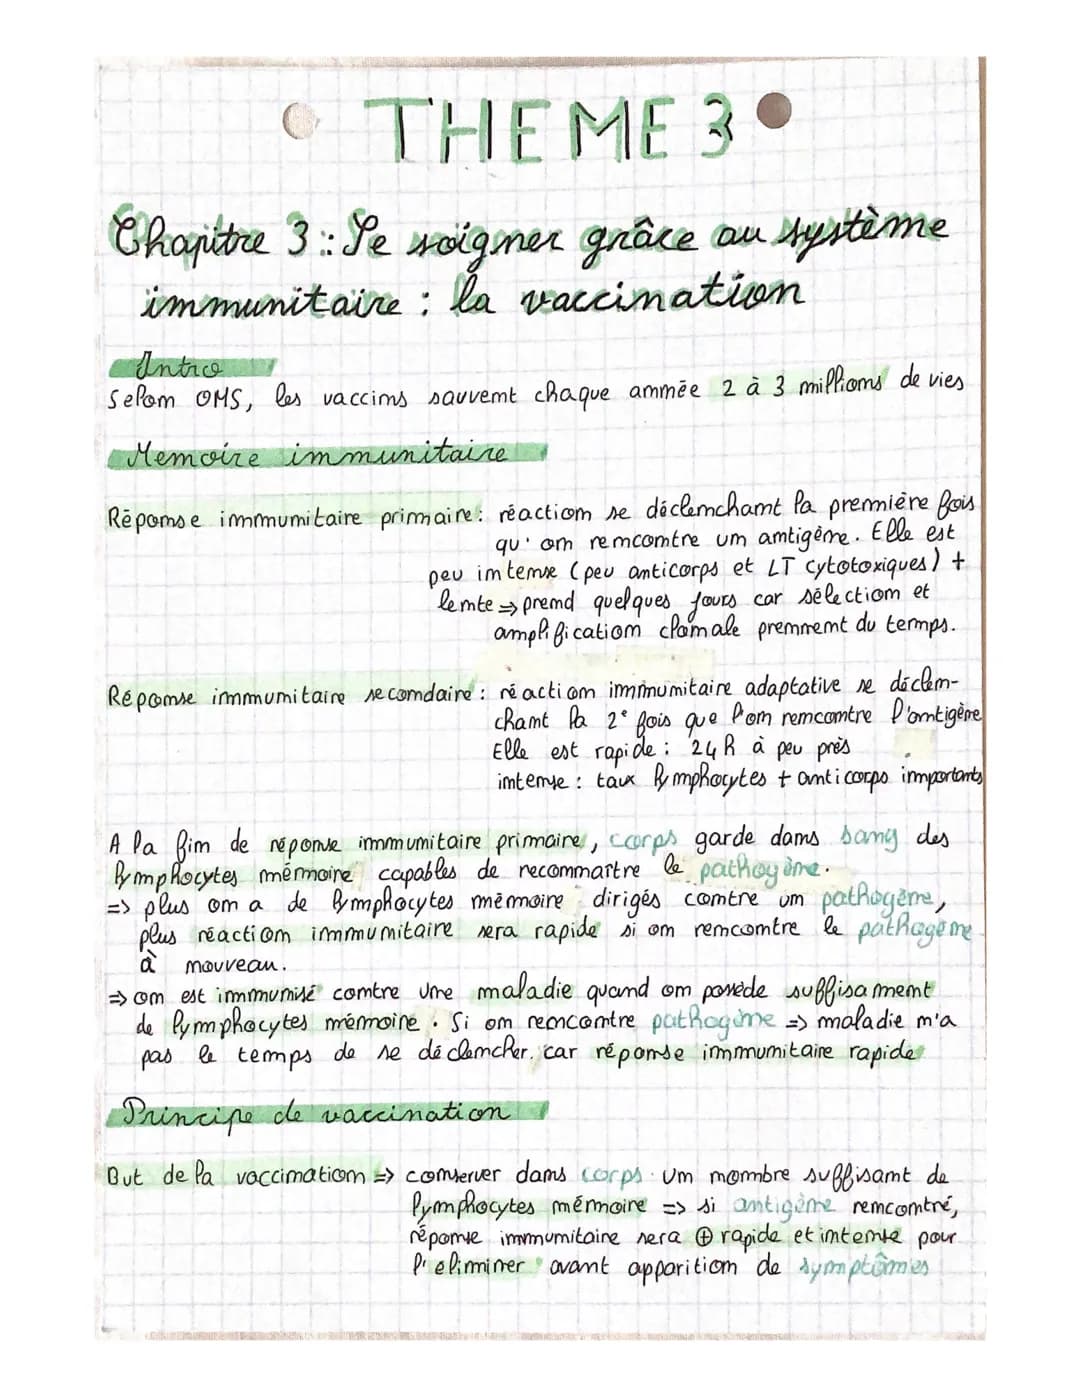 THEME 3
Chapitre 3 : Se soigner grâce au système
immunitaire : la vaccination
Intro
Selon OMS, les vaccins sauvent chaque année 2 à 3 millions de vies
Memoire immunitaire
Réponse immunitaire primaire : réaction se déclenchant la première fois
qu'on rencontre un antigène. Elle est
peu intense (peu anticorps et LT cytotoxiques) +
lente => prend quelques jours car sélection et
amplification clonale prennent du temps.
Réponse immunitaire secondaire : réaction immunitaire adaptative se déclen-
chant la 2e fois que l'on rencontre l'antigène
Elle est rapide : 24h à peu près
intense : taux lymphocytes + anticorps importants
A la fin de réponse immunitaire primaire, corps garde dans sang des
lymphocytes mémoire capables de reconnaître le pathogène.
=> plus on a de lymphocytes mémoire dirigés contre un pathogène,
plus réaction immunitaire sera rapide si on rencontre le pathogène
à nouveau.
=> on est immunisé contre une maladie quand on possède suffisament
de lymphocytes mémoire. Si on rencontre pathogène => maladie n'a
pas le temps de se déclencher. car réponse immunitaire rapide
Principe de vaccination
But de la vaccination => conserver dans corps un nombre suffisant de
lymphocytes mémoire => si antigène rencontré,
réponse immunitaire sera ⊕ rapide et intense pour
l'eliminer avant apparition de symptômes